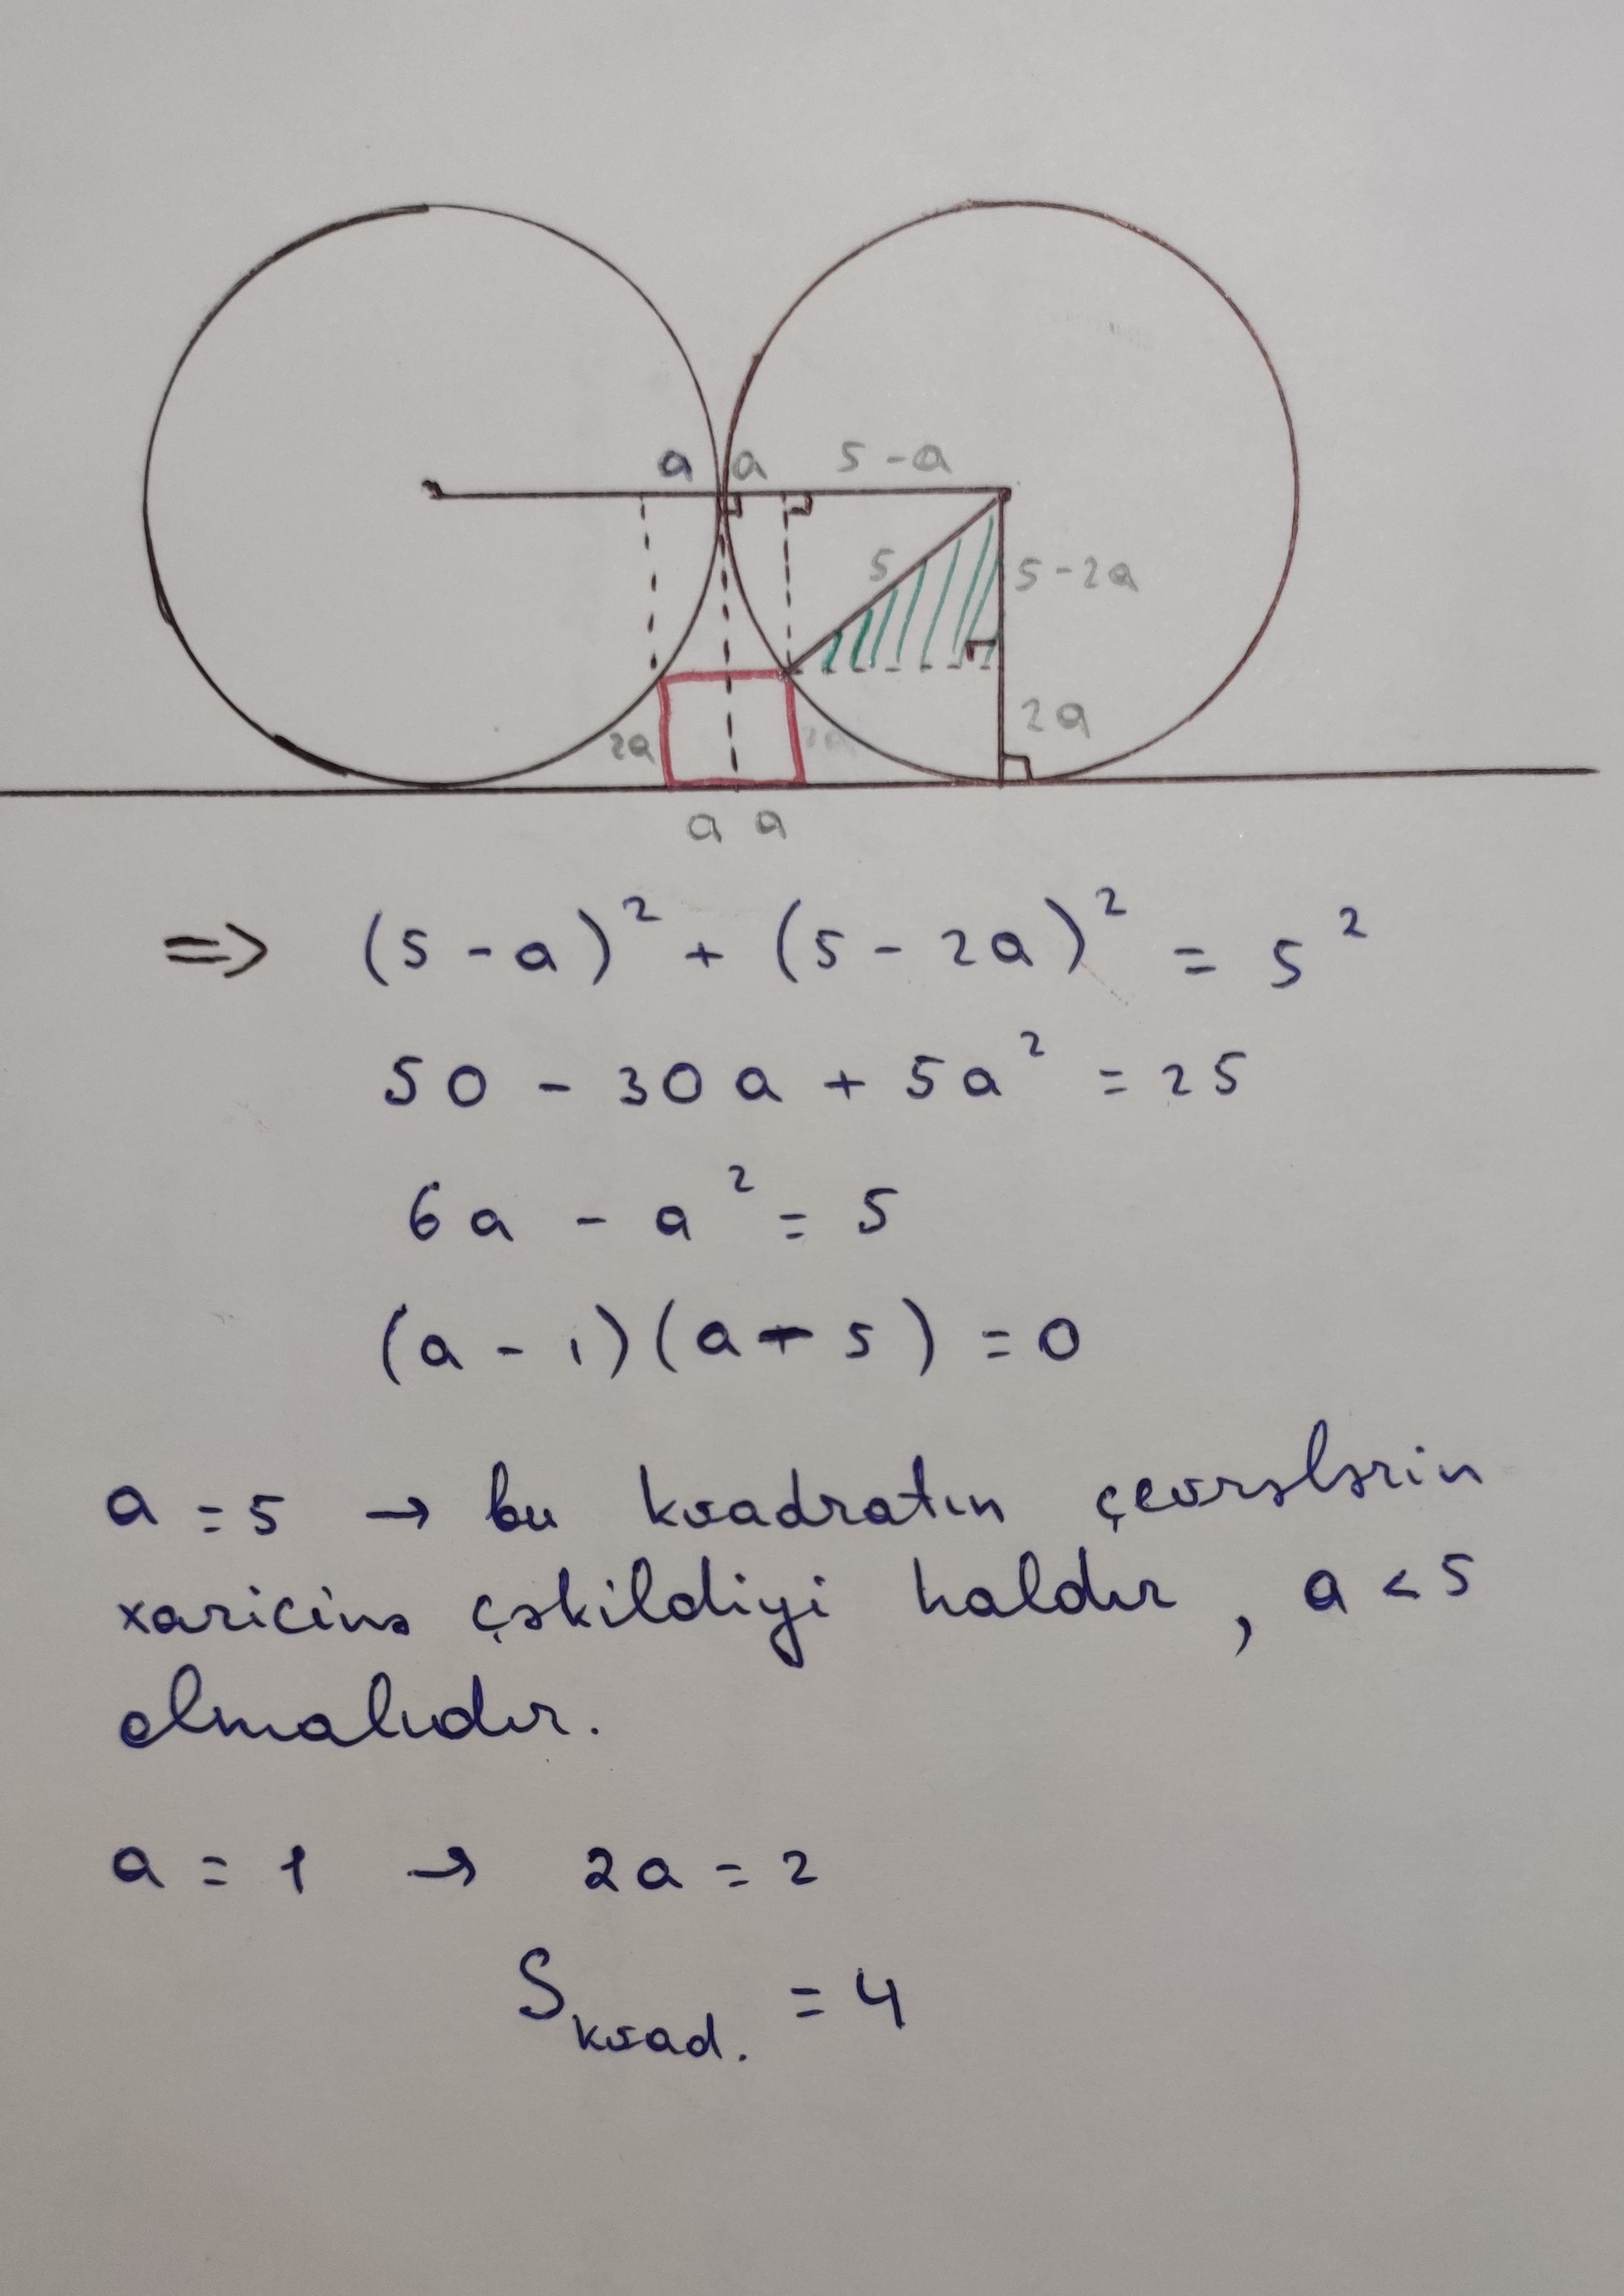 a a 5-a
5 5-2a
2a 2a
a a
=> (5-a)² + (5-2a)² = 5²
50 - 30a + 5a² = 25
6a - a² = 5
(a-1)(a-5) = 0
a = 5 → bu kvadratın çevrələrin
xaricinə çəkildiyi haldır, a < 5
olmalıdır.
a = 1 → 2a = 2
S kvad. = 4